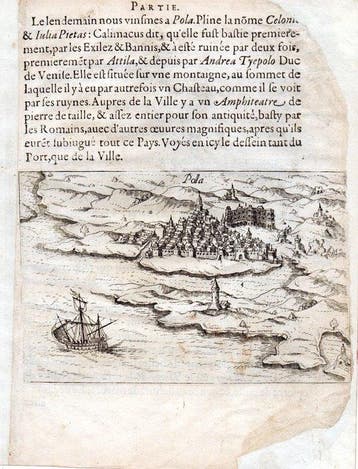 PARTIE.
Le lendemain nous vinsmes a Pola. Pline la nõme Celoni.
& Iulia Pietas: Calimacus dit, qu'elle fust bastie premiere-
ment, par les Exilez & Bannis, & à esté ruinée par deux fois,
premieremẽt par Attila, & depuis par Andrea Tyepolo Duc
de Venise. Elle est située sur vne montaigne, au sommet de
laquelle il y à eu par autrefois vn Chasteau, comme il se voit
par ses ruynes. Aupres de la Ville y a vn Amphiteatre de
pierre de taille, & assez entier pour son antiquité, basty par
les Romains, auec d'autres œuures magnifiques, apres qu'ils
eurẽt subiugué tout ce Pays. Voyés en icy le dessein tant du
Port, que de la Ville.
Pola